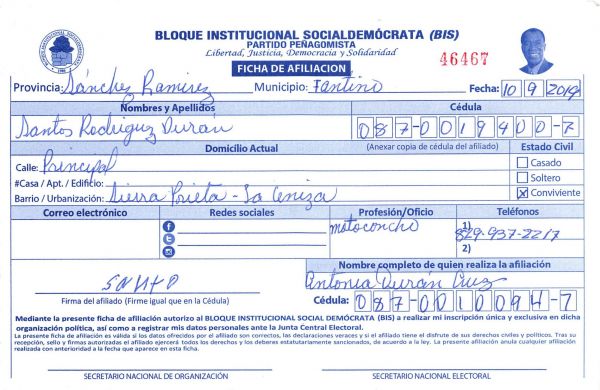 BLOQUE INSTITUCIONAL SOCIALDEMÓCRATA (BIS)
PARTIDO PEÑAGOMISTA
Libertad, Justicia, Democracia y Solidaridad
46467
FICHA DE AFILIACION
Provincia: Sánchez Ramirez Municipio: Fantino Fecha: 10 9 2019
Nombres y Apellidos Cédula
Santos Rodriguez Durán 087-0019400-7
Domicilio Actual (Anexar copia de cédula del afiliado) Estado Civil
Calle: Principal Casado
#Casa / Apt. / Edificio: Soltero
Barrio / Urbanización: Sierra Prieta - La Ceniza X Conviviente
Correo electrónico Redes sociales Profesión/Oficio Teléfonos
motoconcho 1) 829-937-2217
2)
Nombre completo de quien realiza la afiliación
Antonia Durán Cruz
Firma del afiliado (Firme igual que en la Cédula) Cédula: 087-0010094-7
Mediante la presente ficha de afiliación autorizo al BLOQUE INSTITUCIONAL SOCIAL DEMÓCRATA (BIS) a realizar mi inscripción única y exclusiva en dicha
organización política, así como a registrar mis datos personales ante la Junta Central Electoral.
La presente ficha de afiliación es válida si los datos ofrecidos por el afiliado son correctos, las declaraciones veraces y si el afiliado tiene el disfrute de sus derechos civiles y políticos. Tras su
recepción, sello y firmas autorizadas el afiliado ejercerá todos los derechos y los deberes estatutariamente sancionados, de acuerdo a la ley. La presente afiliación anula cualquier afiliación
realizada con anterioridad a la fecha que aparece en esta ficha.
SECRETARIO NACIONAL DE ORGANIZACIÓN SECRETARIO NACIONAL ELECTORAL